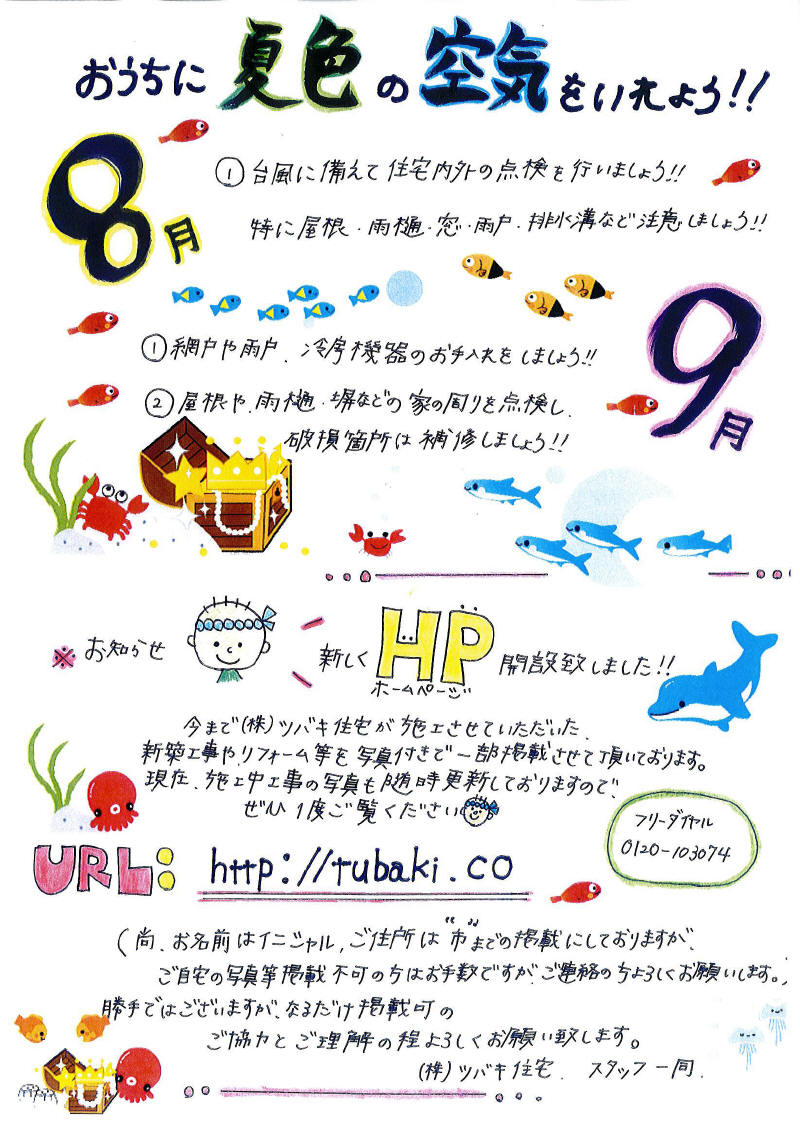 おうちに夏色の空気をいれよう!!
8月
①台風に備えて住宅内外の点検を行いましょう!!
特に屋根・雨樋・窓・雨戸・排水溝など注意しましょう!!
9月
①網戸や雨戸、冷房機器のお手入れをしましょう!!
②屋根や、雨樋・塀などの家の周りを点検し、
破損箇所は補修しましょう!!
※お知らせ
新しくHP開設致しました!!
ホームページ
今まで(株)ツバキ住宅が施工させていただいた、
新築工事やリフォーム等を写真付きで一部掲載させて頂いております。
現在、施工中工事の写真も随時更新しておりますので、
ぜひ1度ご覧ください
フリーダイヤル
0120-103074
URL: http://tubaki.co
(尚、お名前はイニシャル、ご住所は“市”までの掲載にしておりますが、
ご自宅の写真等掲載不可の方はお手数ですが、ご連絡のちよろしくお願いします。)
勝手ではございますが、なるだけ掲載可の
ご協力とご理解の程よろしくお願い致します。
(株)ツバキ住宅、スタッフ一同.